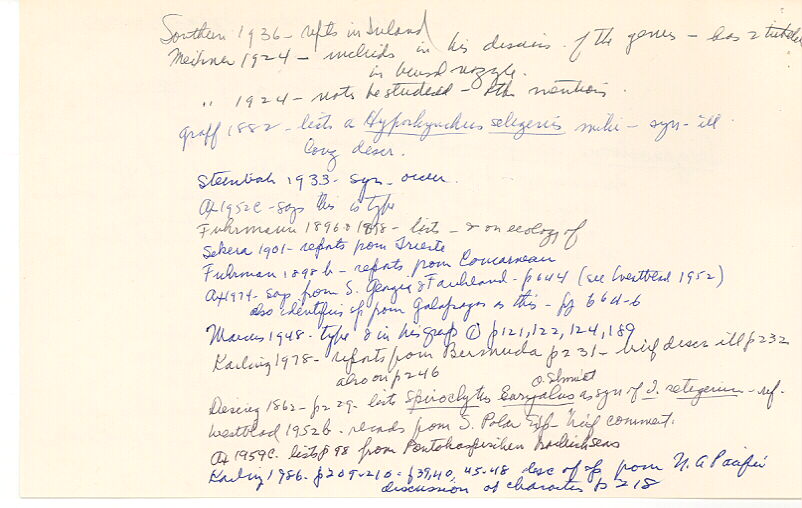 Southern 1936 - repts in Ireland
Meixner 1924 - includs in his discuss. of the genus - has 2
in bursal nozzle.
" 1924 - nots he studied - other mentions.
Graff 1882 - lists a Hyporhynchus setigerus - syn - ill
Long descr.
Steinbock 1933 - syn - occur.
Ax 1952c - says this is type
Fuhrmann 1896 & 1898 - lists - & on ecology of
Sekera 1901 - reports from Trieste
Fuhrman 1898b - reports from Concarneau
Ax 1974 - says from S. Georgia & Faulkland - p644 (see Westblad 1952)
also identifies sp from Galapagos as this - fg 6 6d-6
Marcus 1948 - type & in his grap ① p121, 122, 124, 189
Karling 1978 - reports from Bermuda p231 - brief descr ill p232
also on p246
O. Shmidt
Diesing 1862 - p229 - lists Spiroclytus Euryalus as syn of J. setegerum - ref.
Westblad 1952b - records from S. Polar Exp - brief comment.
Ax 1959c. lists p98 from
Karling 1986 - p209-210 - f39,40, 45-48 desc of sp from N. A Pacific
discussion of characters p218